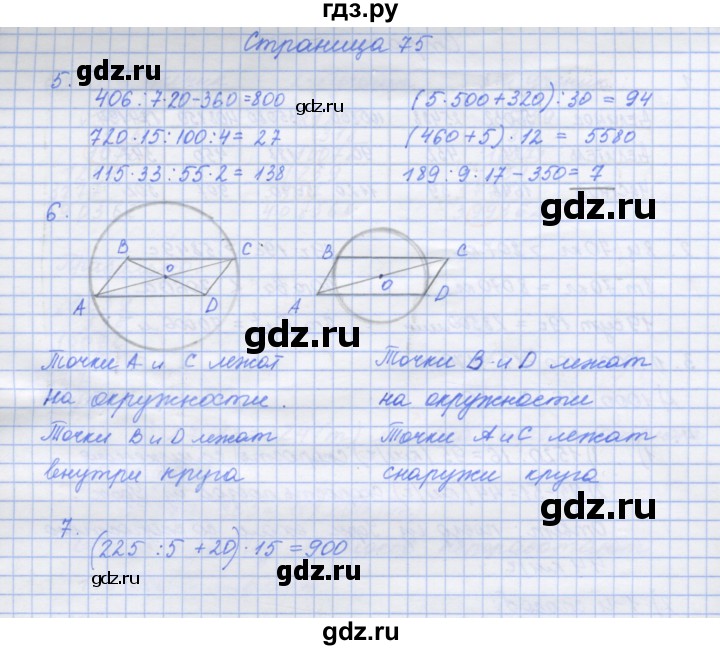 гдз.ру
Страница 75
5.
406 : 7 · 20 - 360 = 800
(5 · 500 + 320) : 30 = 94
720 · 15 : 100 : 4 = 27
(460 + 5) · 12 = 5580
115 · 33 : 55 · 2 = 138
189 : 9 · 17 - 350 = 7
6.
B C
O
A D
B C
O
A D
Точки A и C лежат
на окружности.
Точки B и D лежат
внутри круга
Точки B и D лежат
на окружности
Точки A и C лежат
снаружи круга
7.
(225 : 5 + 20) · 15 = 900
gdz.ru
gdz.ru
gdz.ru
gdz.ru
gdz.ru
gdz.ru
gdz.ru
gdz.ru